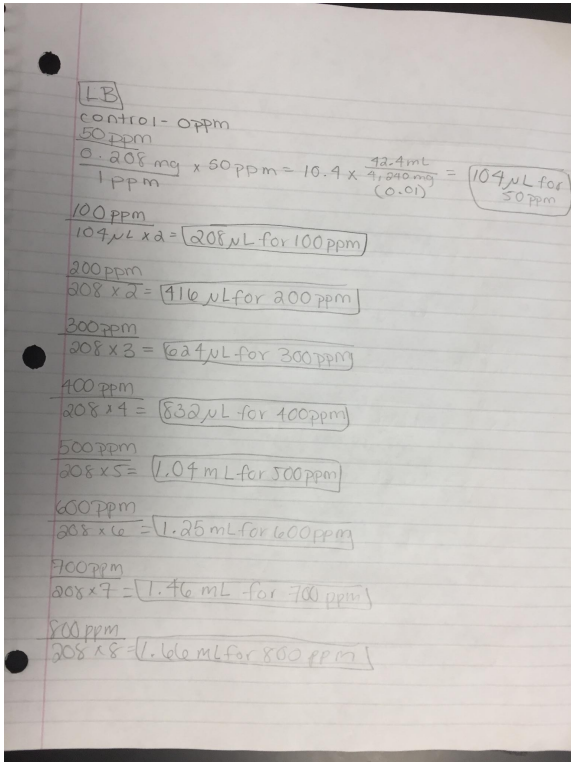 LB
control - 0ppm
50 ppm
0.208 mg / 1 ppm × 50 ppm = 10.4 × 42.4 mL / 4,240 mg (0.01) = 104 µL for 50 ppm
100 ppm
104 µL × 2 = 208 µL for 100 ppm
200 ppm
208 × 2 = 416 µL for 200 ppm
300 ppm
208 × 3 = 624 µL for 300 ppm
400 ppm
208 × 4 = 832 µL for 400 ppm
500 ppm
208 × 5 = 1.04 mL for 500 ppm
600 ppm
208 × 6 = 1.25 mL for 600 ppm
700 ppm
208 × 7 = 1.46 mL for 700 ppm
800 ppm
208 × 8 = 1.66 mL for 800 ppm